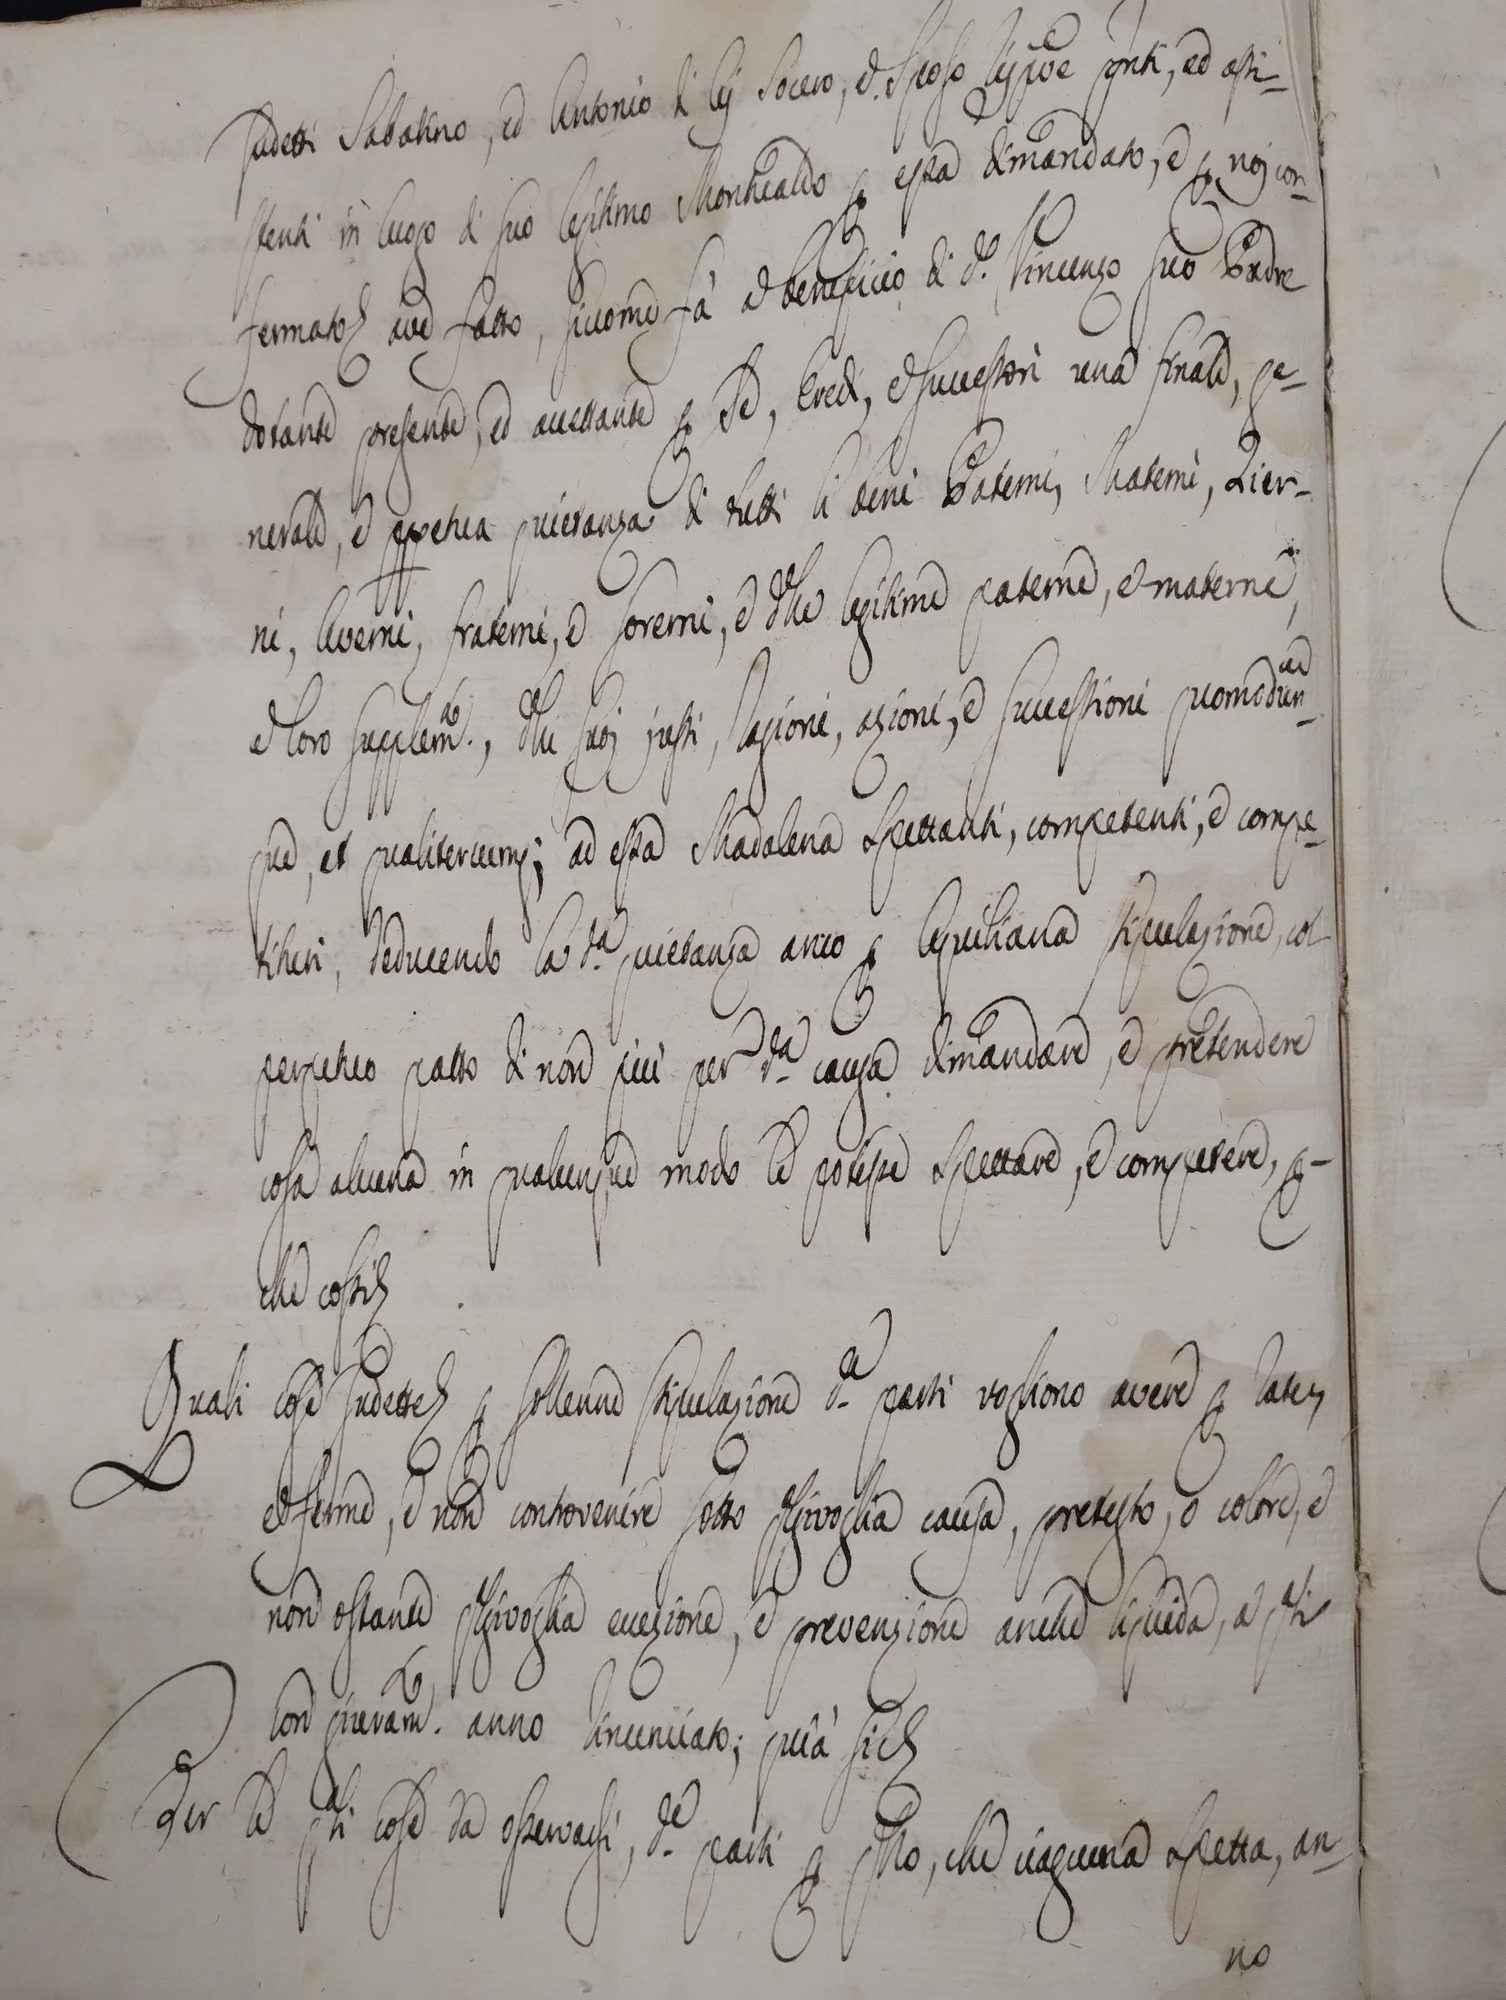 sudetti Sabatino, ed Antonio di lej Socero, e Sposo rispve pnti, ed assi-
stenti in luogo di suo legitimo Montualdo p essa dimandato, e p noj con-
fermato have fatto, siccome fà a beneficio di do. Vincenzo suo Padre
dotante presente, ed accettante p se, Eredi, e successori una finale, ge-
nerale, e appetua quietanza di tutti li beni Paterni, Materni, Zier-
ni, Averni, fraterni, e sorerni, e delle legitime paterne, e materne,
e loro supplemto., delli suoj justi, ragioni, azioni, e successioni quomodocun-
que, et qualitercumq; ad essa Madalena spettanti, competenti, e compe-
tituri, deducendo la da. quietanza anco p aquiliana stipulazione, col
perpetuo patto di non più per da. causa dimandare, e pretendere
cosa alcuna in qualunque modo le potesse spettare, e competere, p-
che cossi
Quali cose sudette p sollenne stipulazione de. parti vogliono avere p rate,
e ferme, e non controvenire sotto qlsivoglia causa, pretesto, o colore, e
non ostante qlsivoglia eccezione, e prevenzione anche liquida, a qli
con giuramto. anno rinunciato; quia sic
Per le qli cose da osservarsi, de. parti p qllo, che ciascuna spetta, an-
no